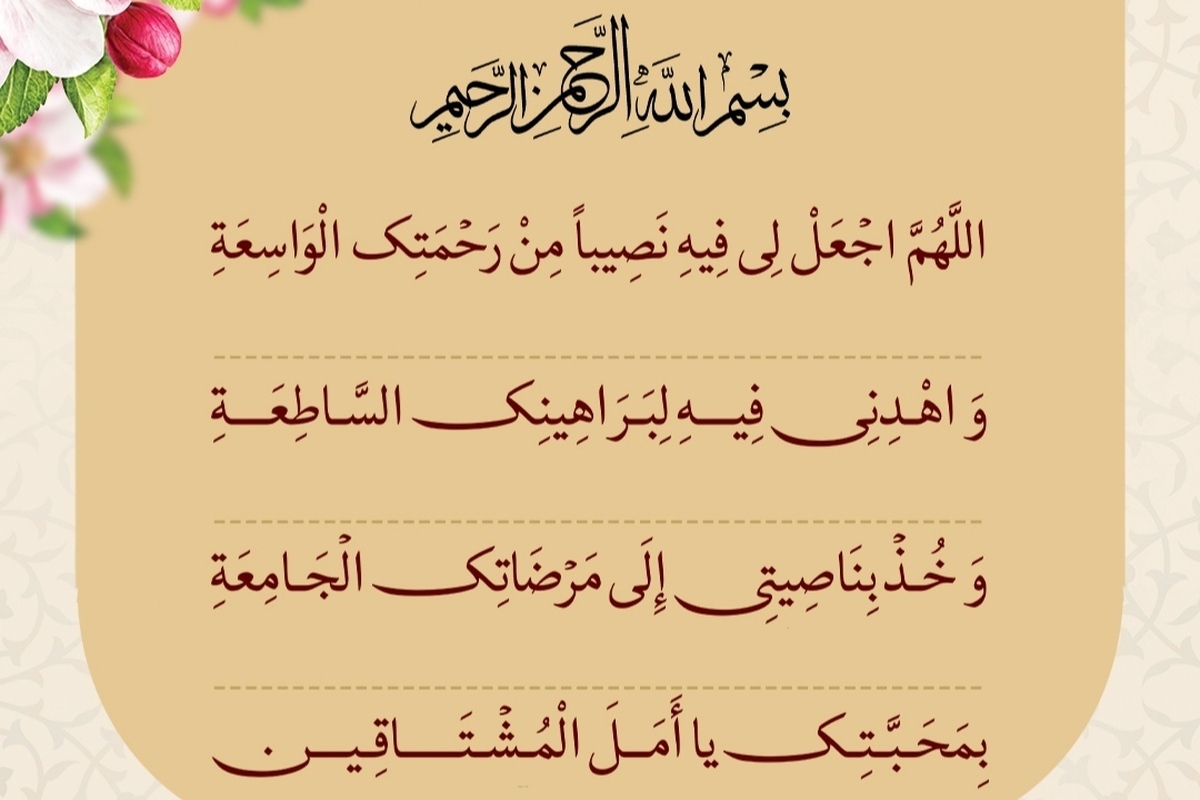 بِسْمِ اللَّهِ الرَّحْمَنِ الرَّحِيمِ
اللَّهُمَّ اجْعَلْ لِی فِیهِ نَصِیباً مِنْ رَحْمَتِک الْوَاسِعَةِ
وَ اهْدِنِی فِیهِ لِبَرَاهِینِک السَّاطِعَةِ
وَ خُذْ بِنَاصِیتِی إِلَی مَرْضَاتِک الْجَامِعَةِ
بِمَحَبَّتِک یا أَمَلَ الْمُشْتَاقِینَ